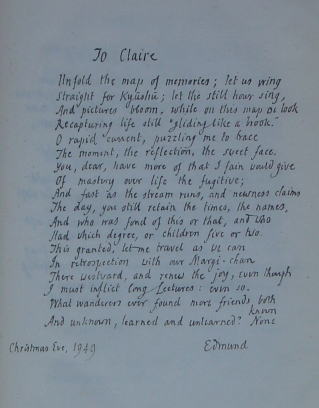 To Claire
Unfold the map of memories; let us wing
Straight for Kyushu; let the still hour sing,
And pictures bloom, while on this map we look
Recapturing life still "gliding like a brook."
O rapid current, puzzling me to trace
The moment, the reflection, the sweet face.
You, dear, have more of that I fain would give
Of mastery over life the fugitive;
And fast as the stream runs, and newness claims
The day, you still retain the times, the names,
And who was fond of this or that, and who
Had which degree, or children five or two.
This granted, let me travel as we can
In retrospection with our Margi-chan
There westward, and renew the joy, even though
I must inflict Long Lectures: even so.
What wanderers ever found more friends, both
known
And unknown, learned and unlearned? None
Christmas Eve, 1949
Edmund